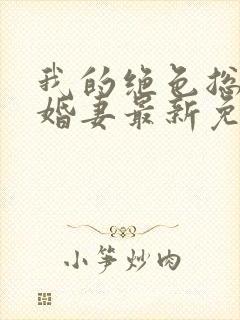 我的绝色总
婚妻最新免
小笋炒肉